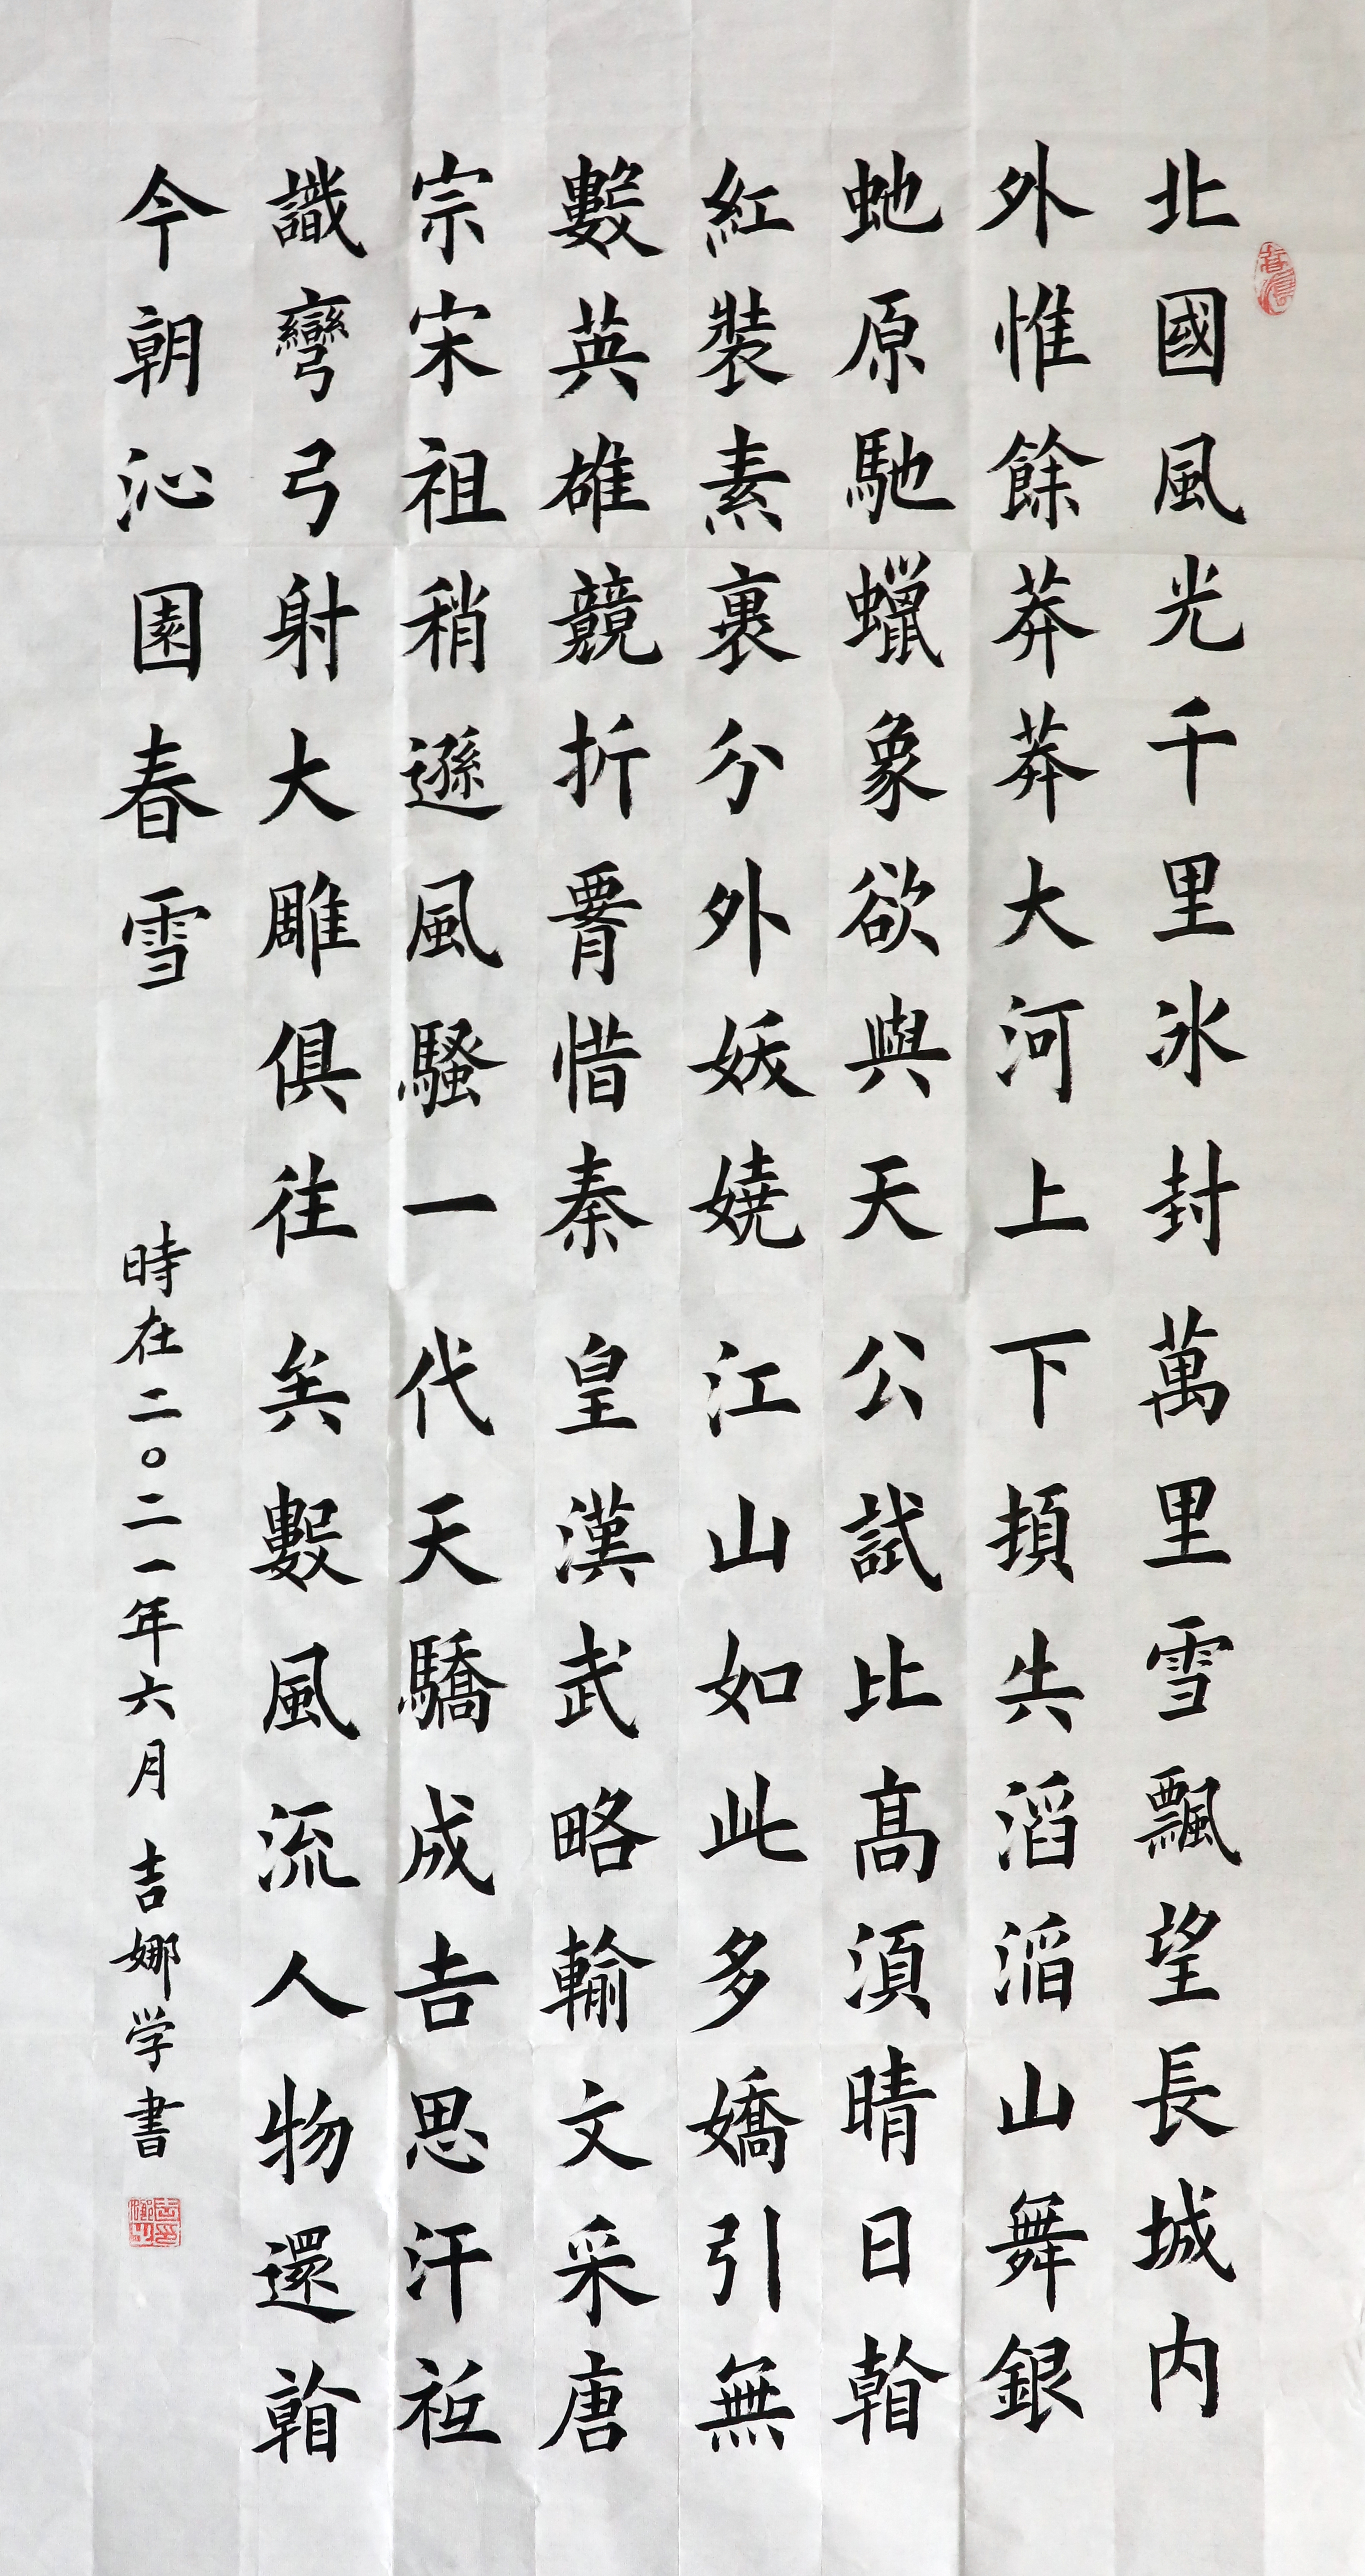 北國風光千里冰封萬里雪飄望長城内
外惟餘莽莽大河上下頓失滔滔山舞銀
虵原馳蠟象欲與天公試比高須晴日看
紅裝素裹分外妖嬈江山如此多嬌引無
數英雄競折腰惜秦皇漢武略輸文采唐
宗宋祖稍遜風騷一代天驕成吉思汗祗
識彎弓射大雕俱往矣數風流人物還看
今朝沁園春雪
時在二〇二一年六月吉娜学書